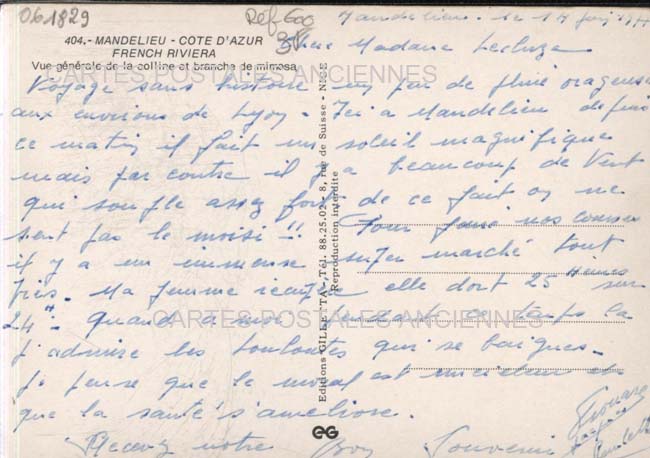 061829
Réf 600
Mandelieu, le 17 juin
404.- MANDELIEU - COTE D'AZUR
FRENCH RIVIERA
Vue générale de la colline et branche de mimosa
Chère Madame
CARTES POSTALES ANCIENNES
Voyage sans histoire un peu de pluie orageuse
aux environs de Lyon - Ici a Mandelieu depuis
ce matin il fait un soleil magnifique
mais par contre il y a beaucoup de vent
qui souffle assez fort, de ce fait on ne
sent pas le moisi !! Pour faire nos courses
il y a un immense super marché tout
près. Ma femme récupère elle dort 25 Heures sur
24 H. Quand à moi pendant ce temps la
CARTES POSTALES ANCIENNES
j'admire les qui se baignes.
Je pense que le moral est meilleur et
que la santé s'améliore.
Recevez notre Bon Souvenir
Editions GILLETTA, Tél. 88.25.02 - 8, rue de Suisse - NICE
Reproduction interdite
EG